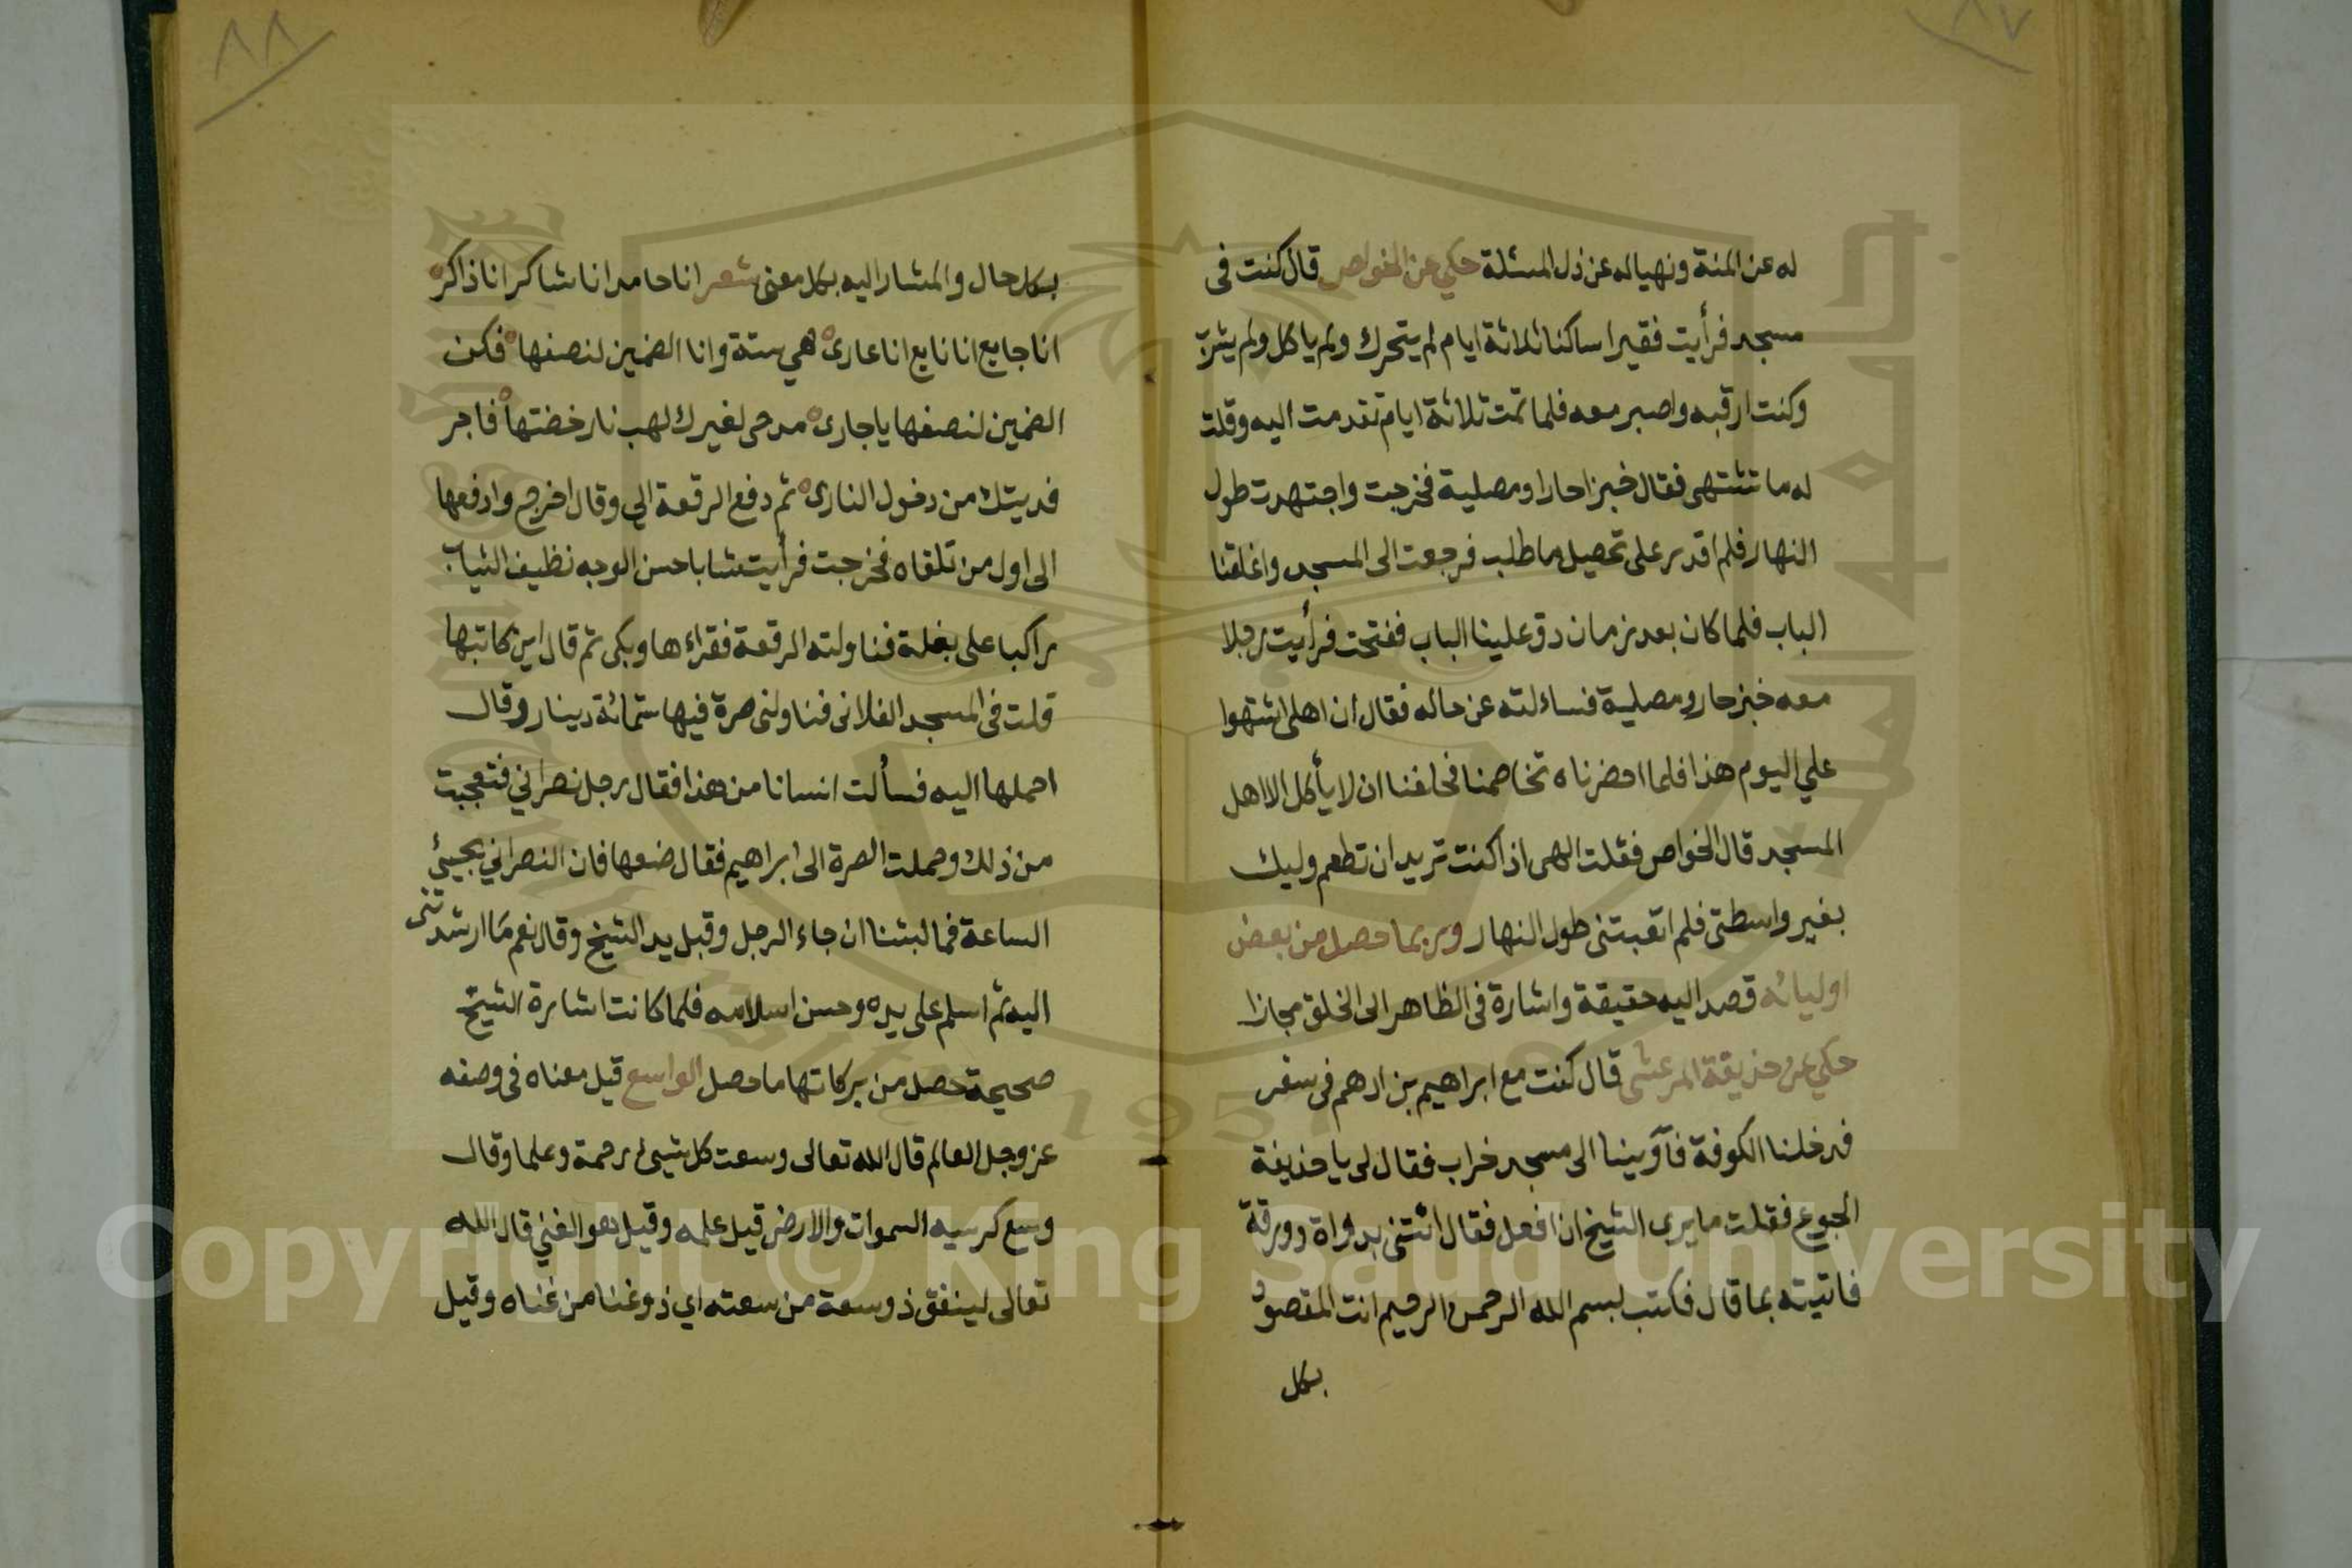 ٨٧
له عن المنة ونهياله عن ذل المسئلة حكي عن الخواص قال كنت فى
مسجد فرأيت فقيرا ساكنا ثلاثة ايام لم يتحرك ولم ياكل ولم يشرب
وكنت ارقبه واصبر معه فلما تمت ثلاثة ايام تقدمت اليه وقلت
له ما تشتهى فقال خبزا حارا ومصلية فخرجت واجتهدت طول
النهار فلم اقدر على تحصيل ما طلب فرجعت الى المسجد واغلقنا
الباب فلما كان بعد زمان دق علينا الباب ففتحت فرأيت رجلا
معه خبز حار ومصلية فساءلته عن حاله فقال ان اهلى اشتهوا
علي اليوم هذا فلما احضرناه تخاصمنا فحلفنا ان لا يأكل الا اهل
المسجد قال الخواص فقلت الهى اذا كنت تريد ان تطعم وليك
بغير واسطتى فلم اتعبتنى طول النهار وربما حصل من بعض
اوليائه قصد اليه حقيقة واشارة فى الظاهر الى الخلق مجازا
حكي عن حذيفة المرعشى قال كنت مع ابراهيم بن ادهم فى سفر
فدخلنا الكوفة فآوينا الى مسجد خراب فقال لى يا حذيفة
الجوع فقلت ما يرى الشيخ ان افعل فقال ائتنى بدواة وورقة
فاتيته بما قال فكتب بسم الله الرحمن الرحيم انت المقصود
بكل
٨٨
بكل حال والمشار اليه بكل معنى شعر انا حامد انا شاكر انا ذاكر
انا جايع انا نايع انا عارى هي ستة وانا الضمين لنصفها فكن
الضمين لنصفها يا جارى مدحى لغيرك لهب نار خضتها فاجر
فديتك من دخول النارى ثم دفع الرقعة الي وقال اخرج وادفعها
الى اول من تلقاه فخرجت فرأيت شابا حسن الوجه نظيف الثياب
راكبا على بغلة فناولته الرقعة فقراءها وبكى ثم قال اين كاتبها
قلت فى المسجد الفلانى فناولنى صرة فيها ستمائة دينار وقال
احملها اليه فسألت انسانا من هذا فقال رجل نصراني فتعجبت
من ذلك وحملت الصرة الى ابراهيم فقال ضعها فان النصراني يجيئ
الساعة فما لبثنا ان جاء الرجل وقبل يد الشيخ وقال نعم ما ارشدتنى
اليه ثم اسلم على يده وحسن اسلامه فلما كانت اشارة الشيخ
صحيحة حصل من بركاتها ما حصل الواسع قيل معناه فى وصفه
عز وجل العالم قال الله تعالى وسعت كل شيئ رحمة وعلما وقال
وسع كرسيه السموات والارض قيل علمه وقيل هو الغني قال الله
تعالى لينفق ذو سعة من سعته اي ذو غنا من غناه وقيل
Copyright © King Saud University
1957